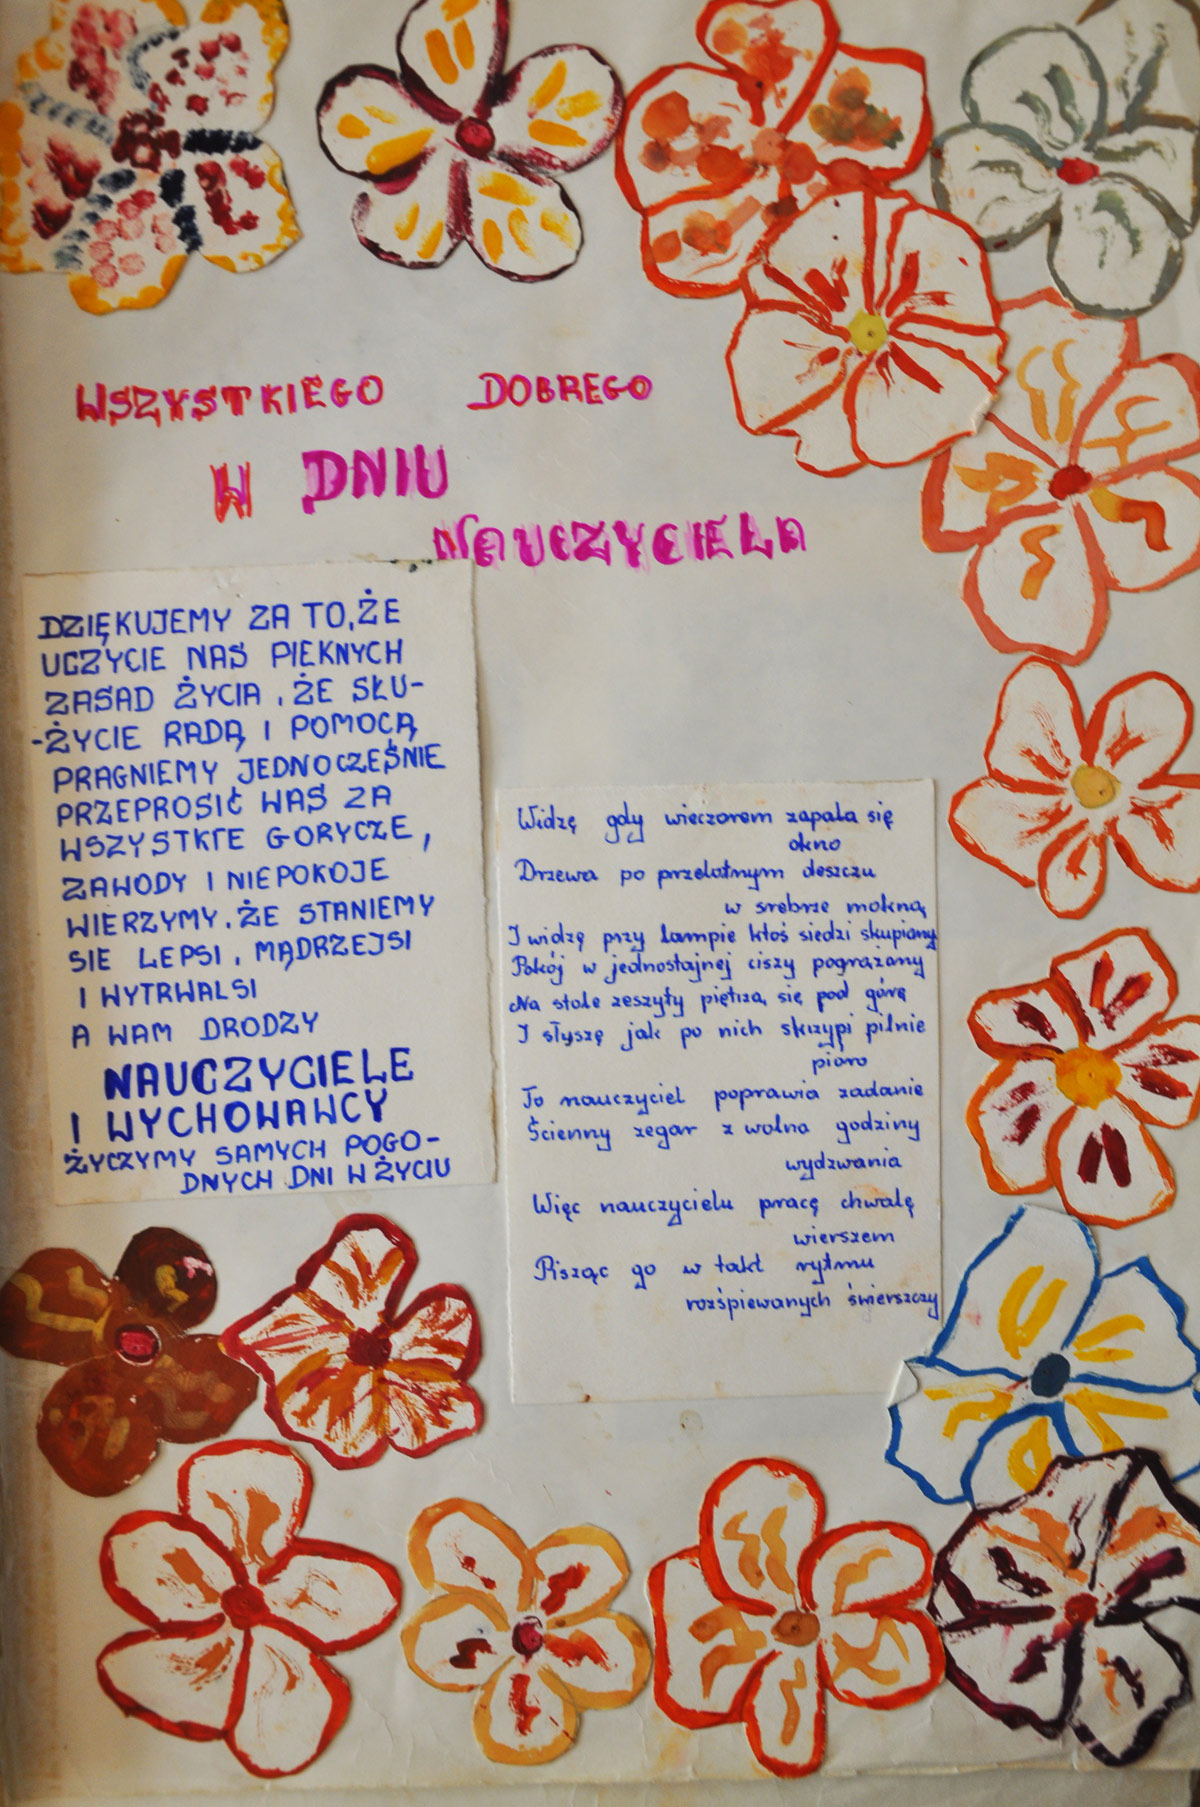 WSZYSTKIEGO DOBREGO
W DNIU
NAUCZYCIELA
DZIĘKUJEMY ZA TO, ŻE
UCZYCIE NAS PIĘKNYCH
ZASAD ŻYCIA, ŻE SŁU-
-ŻYCIE RADĄ I POMOCĄ
PRAGNIEMY JEDNOCZEŚNIE
PRZEPROSIĆ WAS ZA
WSZYSTKIE GORYCZE,
ZAWODY I NIEPOKOJE
WIERZYMY, ŻE STANIEMY
SIE LEPSI, MĄDRZEJSI
I WYTRWALSI
A WAM DRODZY
NAUCZYCIELE
I WYCHOWAWCY
ŻYCZYMY SAMYCH POGO-
DNYCH DNI W ŻYCIU
Widzę gdy wieczorem zapala się
okno
Drzewa po przelotnym deszczu
w srebrze mokną
I widzę przy lampie ktoś siedzi skupiony
Pokój w jednostajnej ciszy pogrążany
Na stole zeszyty piętrzą się pod górę
I słyszę jak po nich skrzypi pilnie
pioro
To nauczyciel poprawia zadanie
Ścienny zegar z wolna godziny
wydzwania
Więc nauczycielu pracę chwalę
wierszem
Pisząc go w takt rytmu
rozśpiewanych świerszczy